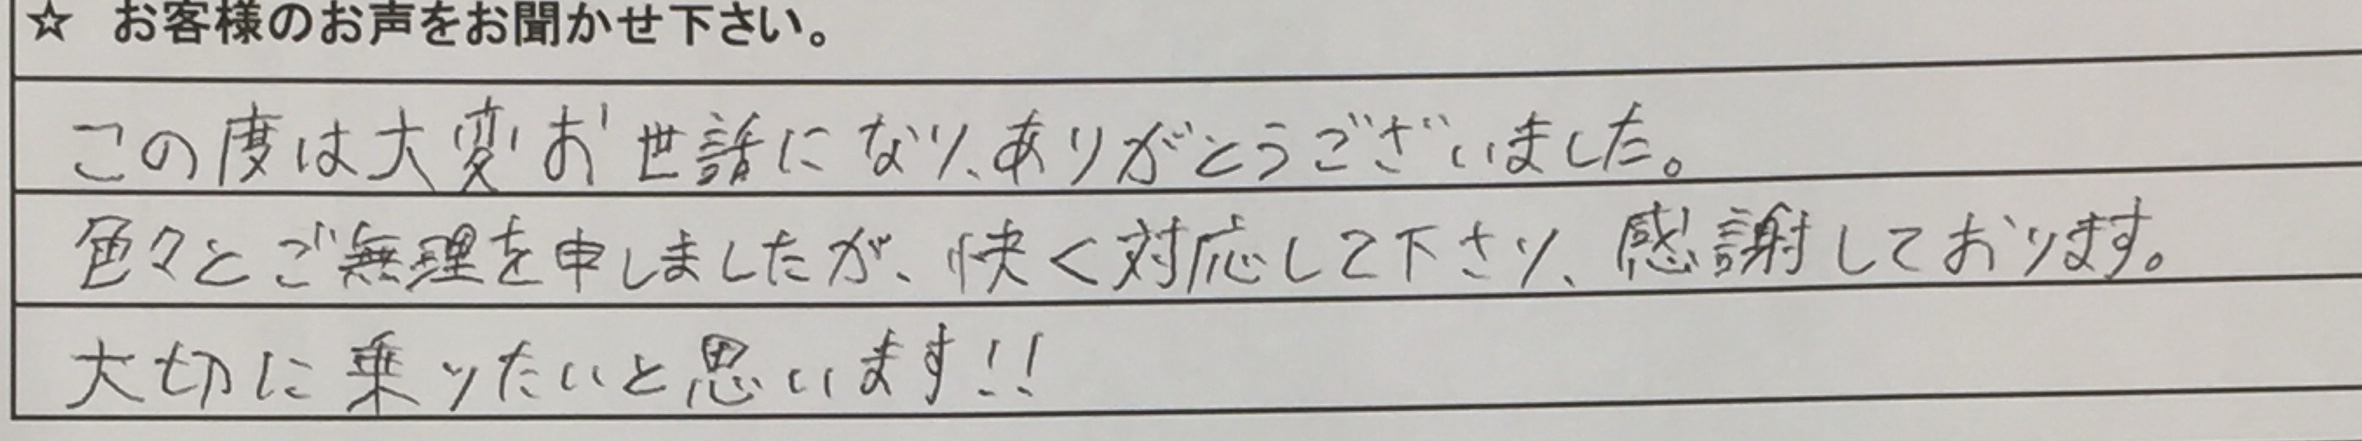 ☆ お客様のお声をお聞かせ下さい。
この度は大変お世話になり、ありがとうございました。
色々とご無理を申しましたが、快く対応して下さり、感謝しております。
大切に乗りたいと思います!!